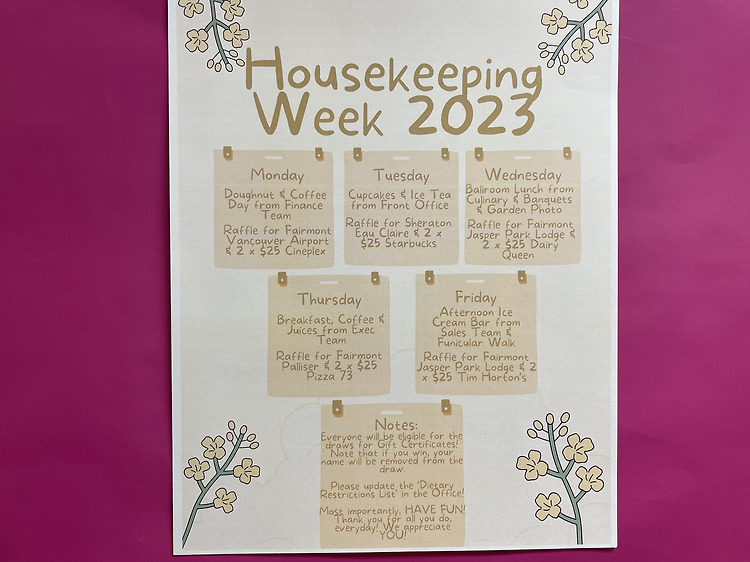 Housekeeping
Week 2023
Monday
Doughnut & Coffee
Day from Finance
Team
Raffle for Fairmont
Vancouver Airport
& 2 x $25 Cineplex
Tuesday
Cupcakes & Ice Tea
from Front Office
Raffle for Sheraton
Eau Claire & 2 x
$25 Starbucks
Wednesday
Ballroom Lunch from
Culinary & Banquets
& Garden Photo
Raffle for Fairmont
Jasper Park Lodge &
2 x $25 Dairy
Queen
Thursday
Breakfast, Coffee &
Juices from Exec
Team
Raffle for Fairmont
Palliser & 2 x $25
Pizza 73
Friday
Afternoon Ice
Cream Bar from
Sales Team &
Funicular Walk
Raffle for Fairmont
Jasper Park Lodge & 2
x $25 Tim Horton's
Notes:
Everyone will be eligible for the
draws for Gift Certificates!
Note that if you win, your
name will be removed from the
draw.
Please update the 'Dietary
Restrictions List' in the Office!
Most importantly, HAVE FUN!
Thank you for all you do,
everyday! We appreciate
YOU!